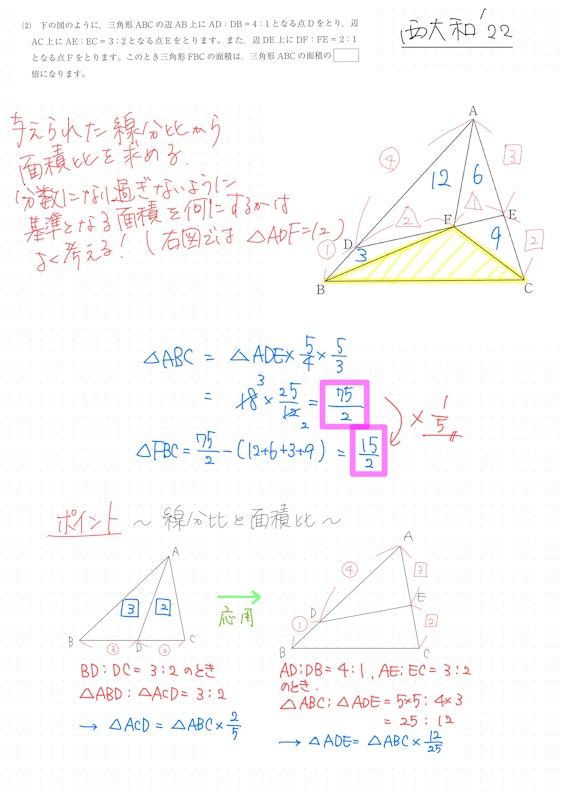 (2) 下の図のように，三角形ABCの辺AB上にAD：DB＝4：1となる点Dをとり，辺
AC上にAE：EC＝3：2となる点Eをとります。また，辺DE上にDF：FE＝2：1
となる点Fをとります。このとき三角形FBCの面積は，三角形ABCの面積の
倍になります。
西大和'22
与えられた線分比から
面積比を求める.
(分数)になり過ぎないように
基準となる面積を何にするかは
よく考える! (右図では △ADF=12)
A
④
3
12
6
②
1
F
E
D
①
3
9
2
B
C
△ABC = △ADE×5/4×5/3
= 18 3 ×25/12 2 = 75/2
×1/5
△FBC=75/2-(12+6+3+9) = 15/2
ポイント ～ 線分比と面積比～
A
3
2
B
③
D
②
C
応用
A
④
3
D
E
①
2
B
C
BD:DC = 3:2 のとき
△ABD:△ACD = 3:2
→ △ACD = △ABC×2/5
AD:DB=4:1, AE:EC=3:2
のとき.
△ABC:△ADE=5×5:4×3
= 25:12
→ △ADE= △ABC×12/25